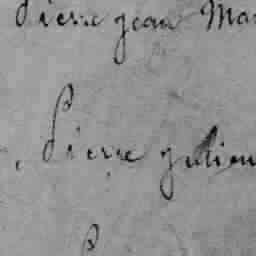 Pierre jean Mar
Pierre julien